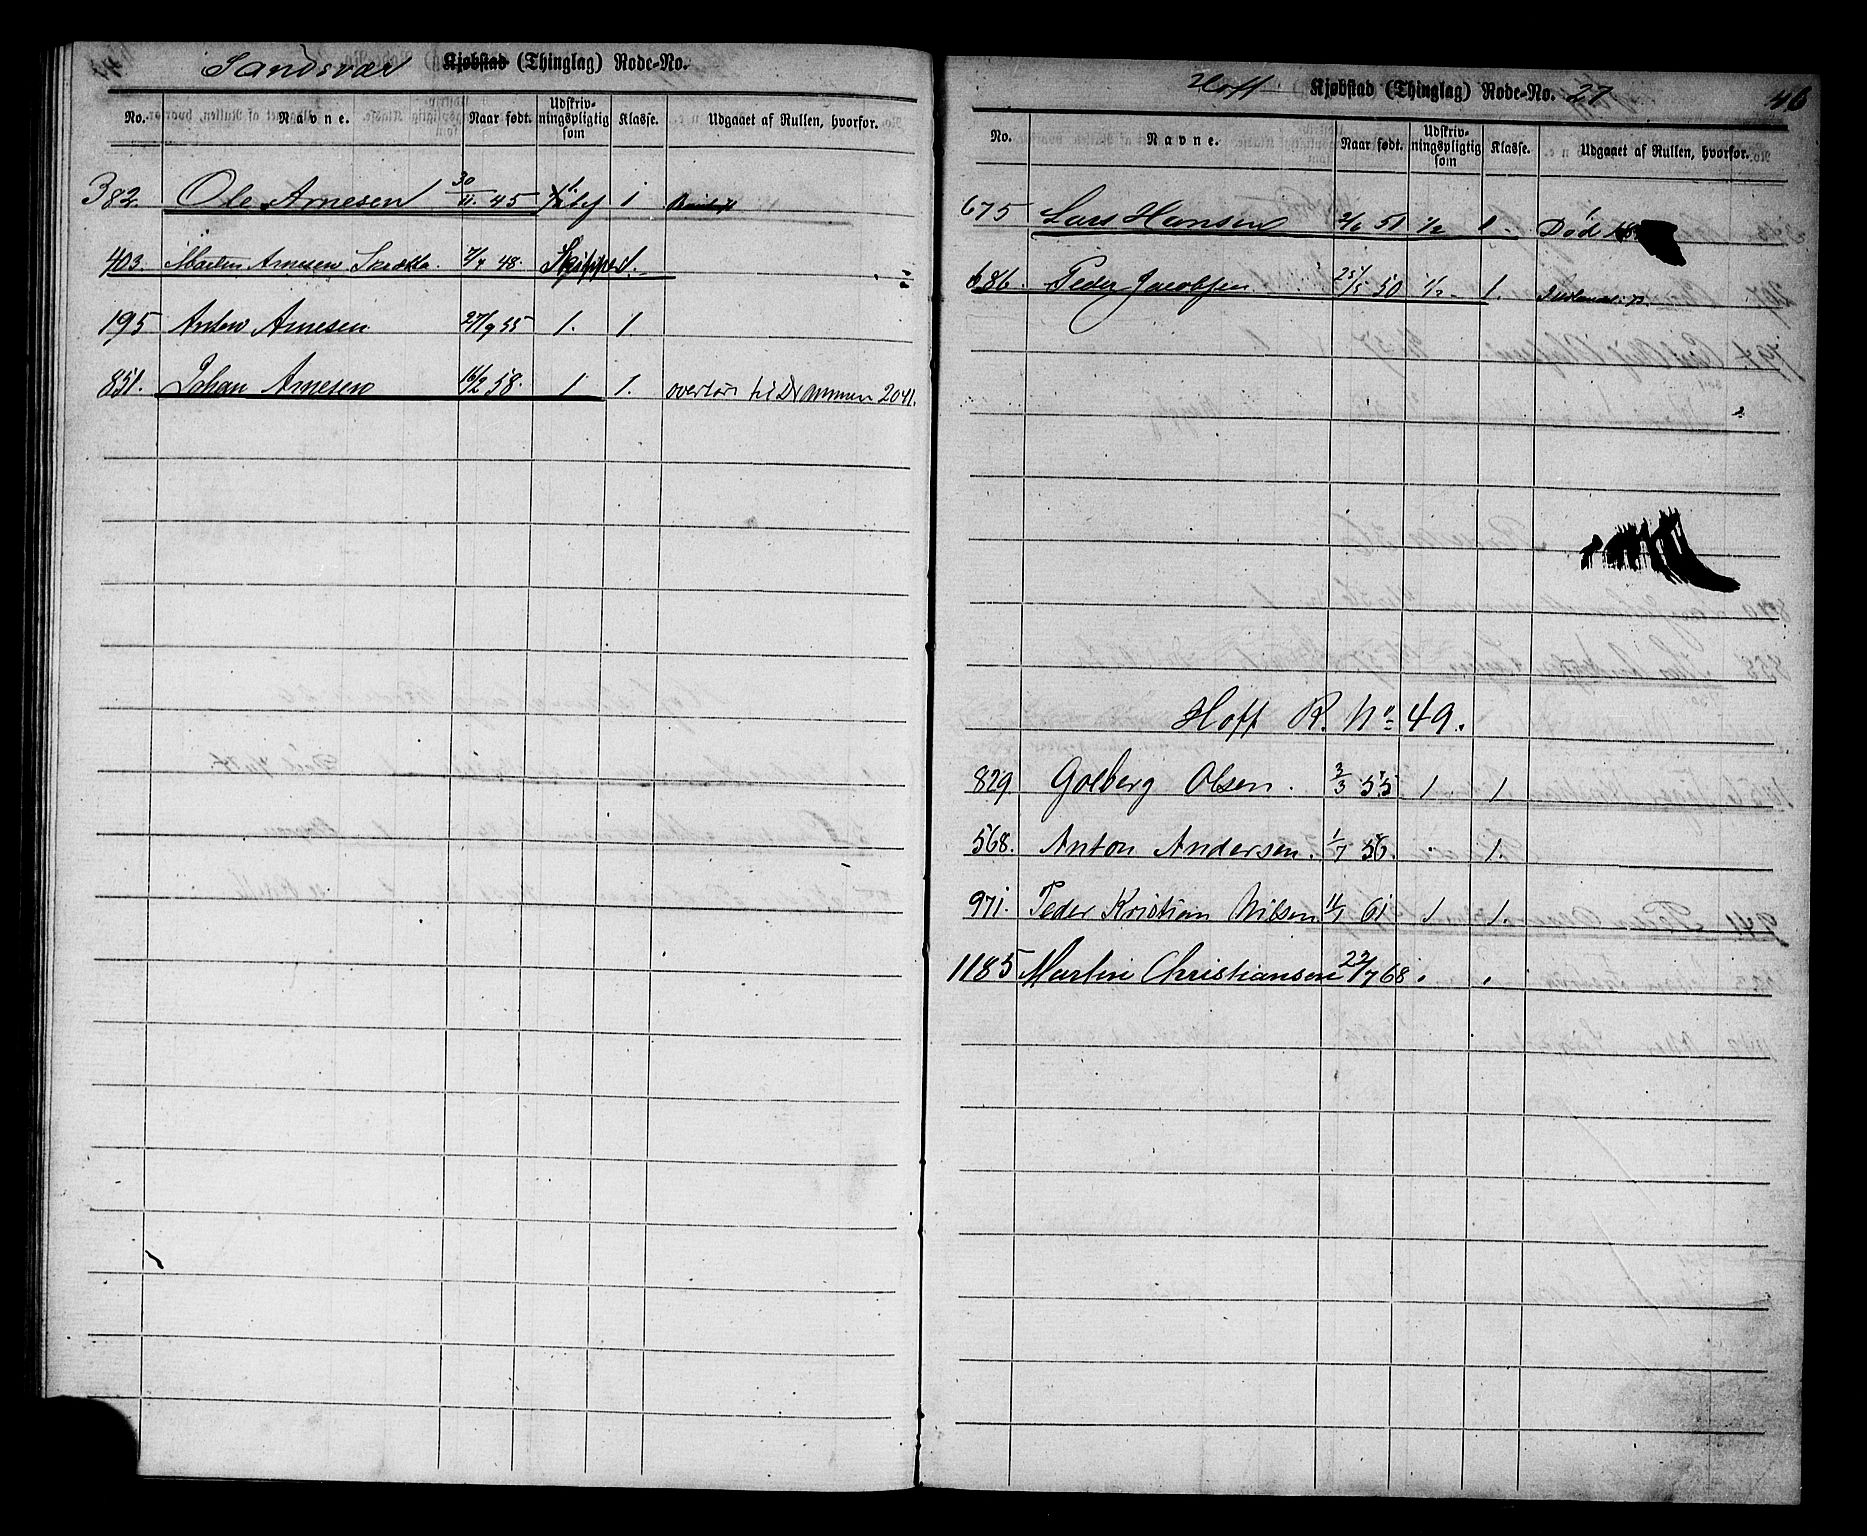 Sandsvær Kjøbstad (Thinglag) Rode-No.
No. Navne. Naar født. Udskrivningspligtig som Klasse. Udgaaet af Rullen, hvorfor.
382. Ole Arnesen 30/11 45 1
403. Martin Arnesen 7/7 48. Skipper 1.
195 Anton Arnesen 27/9 55 1. 1.
851. Johan Arnesen 16/2 58. 1 1. overført til Drammen 2041.
Hoff Kjøbstad (Thinglag) Rode-No. 27
46
No. Navne. Naar født. Udskrivningspligtig som Klasse. Udgaaet af Rullen, hvorfor.
675 Lars Hansen 2/6 50 1/2 1. Død
686. Peder Jacobsen 25/5 50 1/2 1.
Hoff R. No 49.
829. Golberg Olsen. 3/3 55 1 1
568. Anton Andersen. 1/7 56. 1.
971. Peder Kristian Nilsen 11/1 61 1 1.
1185 Martin Christiansen 22/7 68